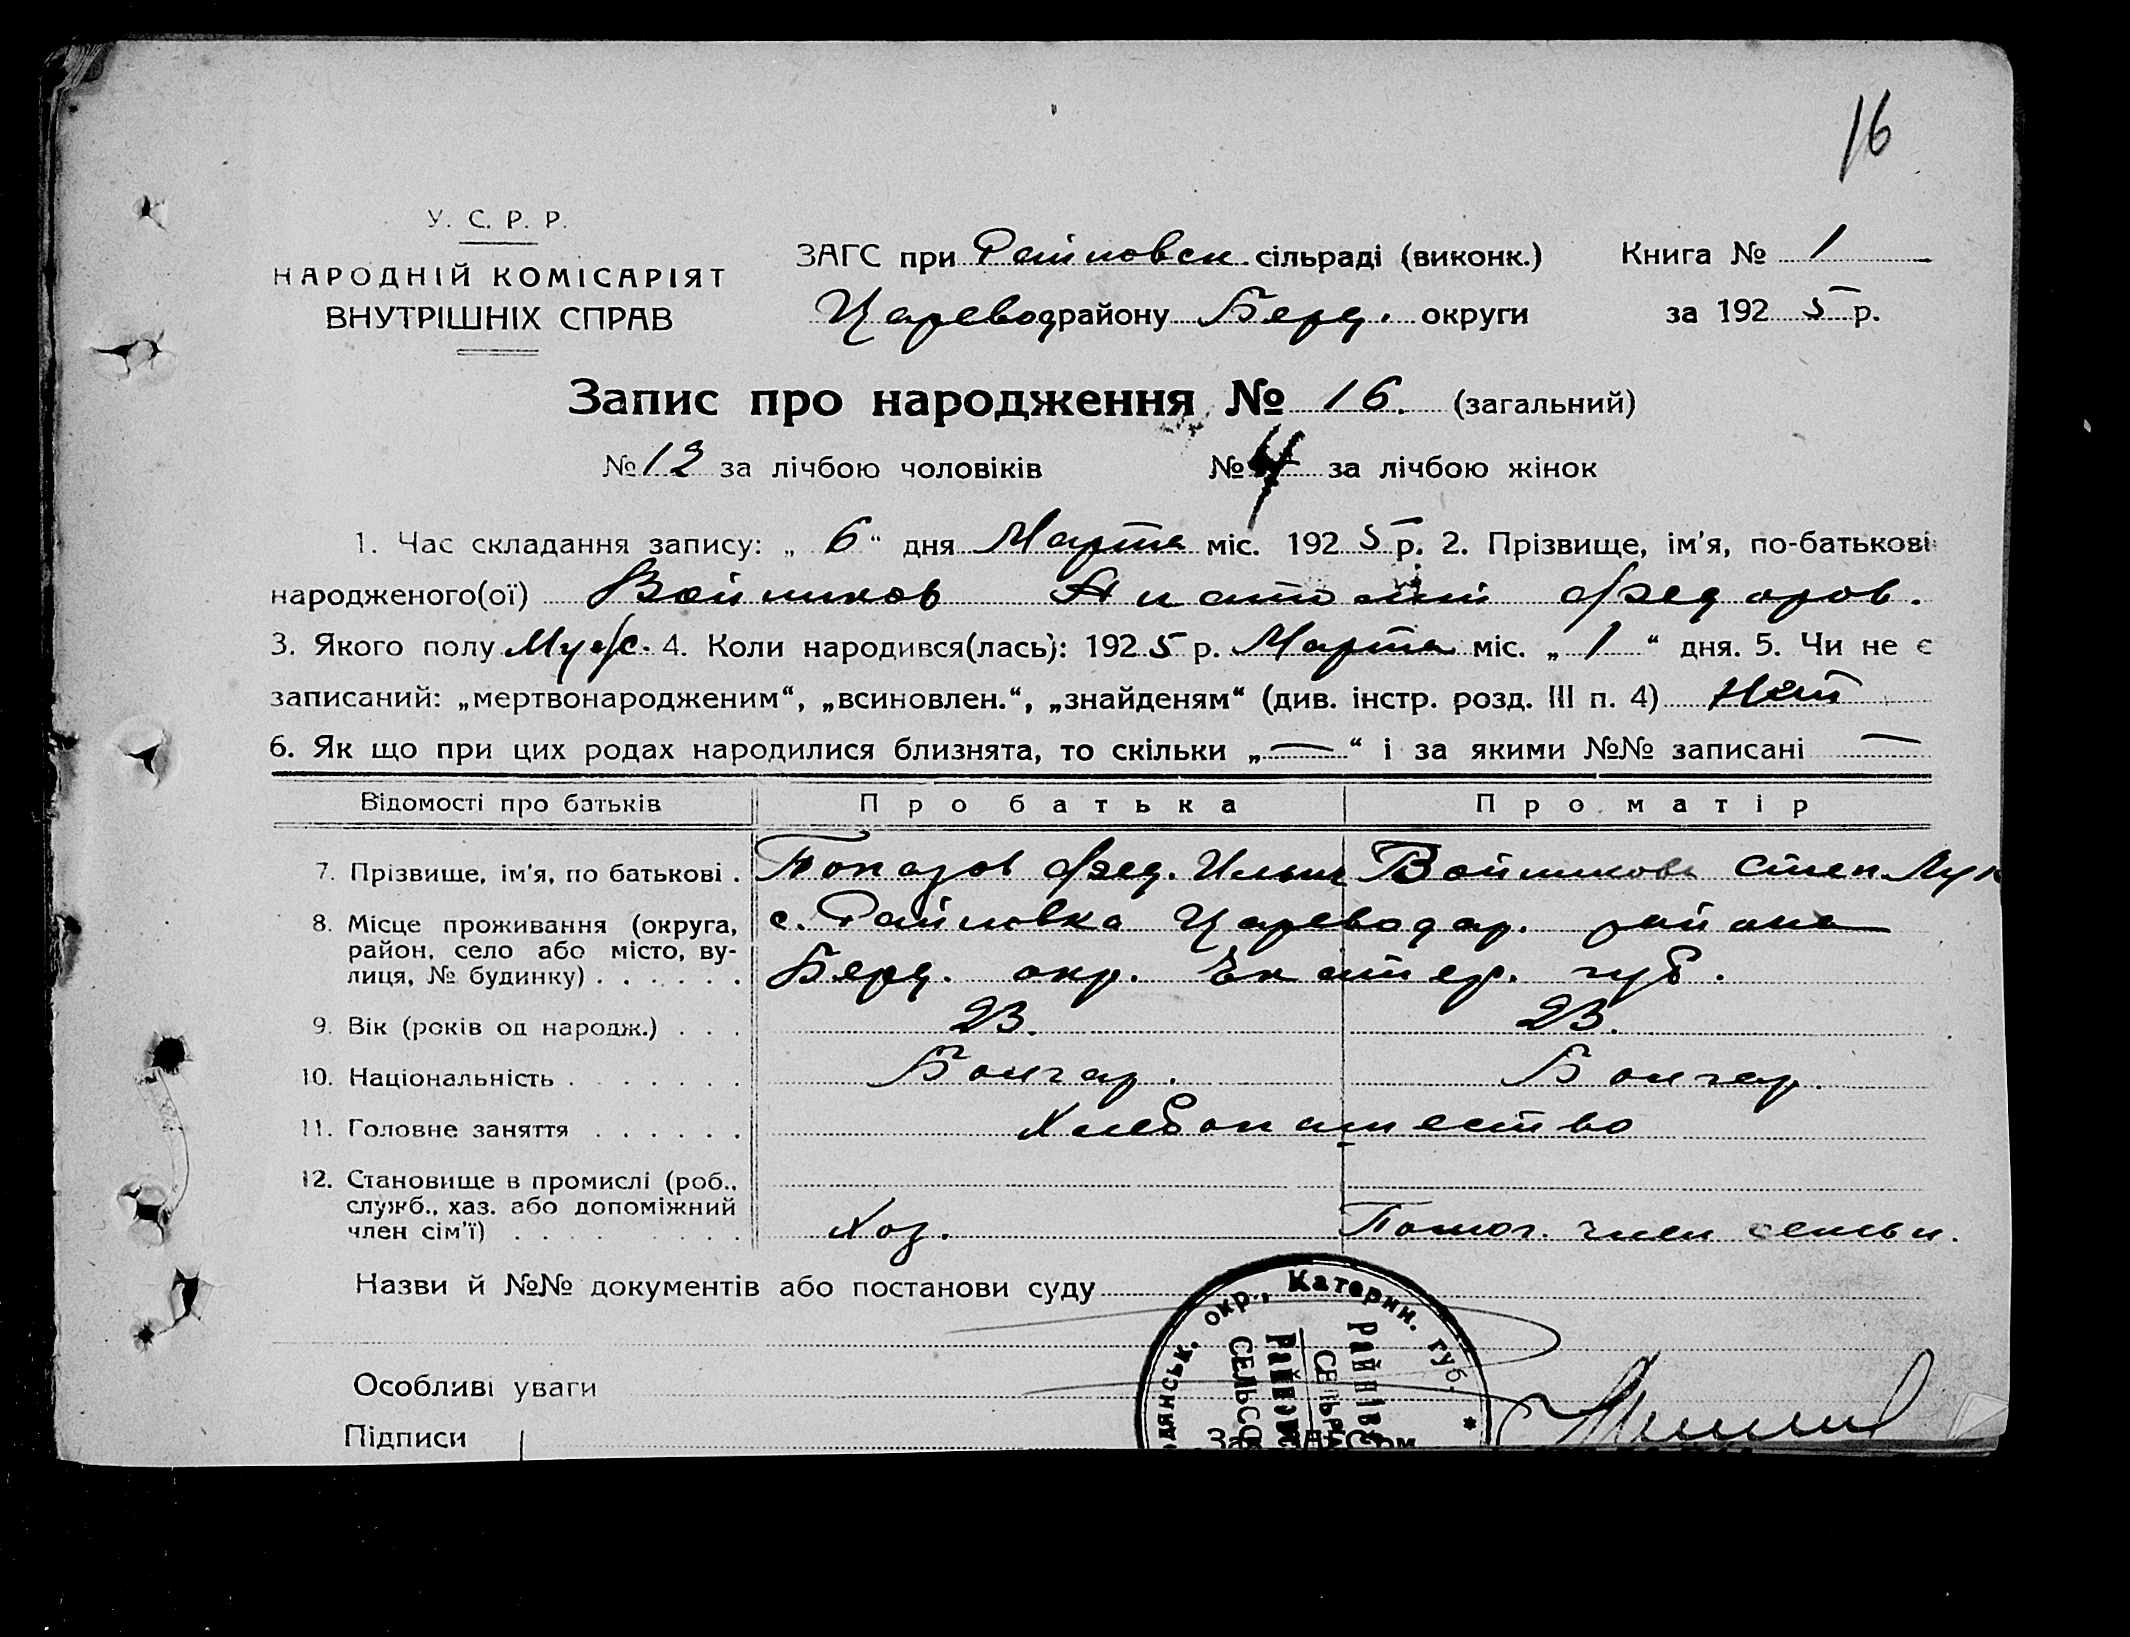 16
У. С. Р. Р.
НАРОДНІЙ КОМІСАРІЯТ
ВНУТРІШНІХ СПРАВ
ЗАГС при Райновск сільраді (виконк.) Книга № 1
Царевод району Берд. округи за 1925 р.
Запис про народження № 16. (загальний)
№ 12 за лічбою чоловіків № 4 за лічбою жінок
1. Час складання запису: „ 6 “ дня Марта міс. 1925 р. 2. Прізвище, ім'я, по-батькові
народженого(ої) Войников Анатолий Федоров.
3. Якого полу Муж. 4. Коли народився(лась): 1925 р. Марта міс. „ 1 “ дня. 5. Чи не є
записаний: „мертвонародженим“, „всиновлен.“, „знайденям“ (див. інстр. розд. III п. 4) Нет
6. Як що при цих родах народилися близнята, то скільки „—“ і за якими №№ записані —
Відомості про батьків Про батька Про матір
7. Прізвище, ім'я, по батькові . Топазов Фед. Ильич Войникова Степ.
8. Місце проживання (округа, с. Райновка Цареводар. района
район, село або місто, ву-
лиця, № будинку) . . . . . . Берд. окр. Екатер. губ.
9. Вік (років од народж.) . . . 23. 23.
10. Національність . . . . . . . Болгар. Болгар.
11. Головне заняття . . . . . . Хлебопашество
12. Становище в промислі (роб.,
служб., хаз. або допоміжний
член сім'ї) . . . . . . . . . Хоз. Помог. член семьи.
Назви й №№ документів або постанови суду
окр., Катерин. губ. *
Особливі уваги
Підписи